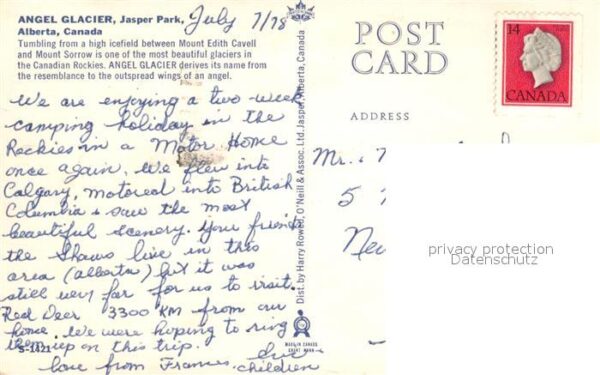 ANGEL GLACIER, Jasper Park,
Alberta, Canada
July 7/78
Tumbling from a high icefield between Mount Edith Cavell
and Mount Sorrow is one of the most beautiful glaciers in
the Canadian Rockies. ANGEL GLACIER derives its name from
the resemblance to the outspread wings of an angel.
We are enjoying a two week
camping holiday in the
Rockies in a Motor Home
once again. We flew into
Calgary, motored into British
Columbia & saw the most
beautiful scenery. Your friends
the Shaws live in this
area (alberta) but it was
still very far for us to visit.
Red Deer 3300 KM from our
home. We were hoping to ring
them up on this trip.
love from Frances, children
S-1421
Dist. by Harry Rowed, O'Neill & Assoc. Ltd. Jasper, Alberta, Canada
MADE IN CANADA
POST
CARD
ADDRESS
14
CANADA
Mr.
5
privacy protection
Datenschutz